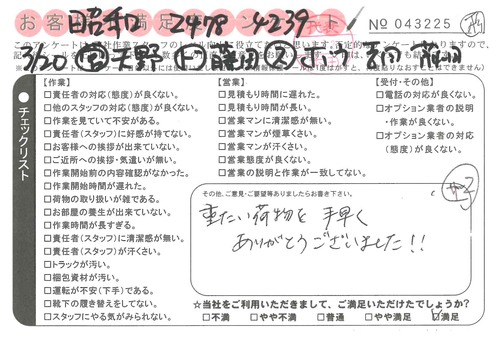 お客様満足アンケート
No 043225
昭和 2478 4239
3/20 天野 藤田
【作業】
□責任者の対応(態度)が良くない。
□他のスタッフの対応(態度)が良くない。
□作業を見ていて不安がある。
□責任者(スタッフ)に好感が持てない。
□お客様への挨拶が出来ていない。
□ご近所への挨拶・気遣いが無い。
□作業開始前の内容確認がなかった。
□作業開始時間が遅れた。
□荷物の取り扱いが雑である。
□お部屋の養生が出来ていない。
□作業時間が長すぎる。
□責任者(スタッフ)に清潔感が無い。
□責任者(スタッフ)が汗くさい。
□トラックが汚い。
□梱包資材が汚い。
□運転が不安(下手)である。
□靴下の履き替えをしてない。
□スタッフにやる気がみられない。
【営業】
□見積もり時間に遅れた。
□見積もり時間が長い。
□営業マンに清潔感が無い。
□営業マンが煙草くさい。
□営業マンが汗くさい。
□営業態度が良くない。
□営業の説明と作業が一致してない。
【受付・その他】
□電話の対応が良くない。
□オプション業者の説明
・作業が良くない。
□オプション業者の対応
(態度)が良くない。
●チェックリスト
その他、ご意見・ご要望等ありましたらお書き下さい。
重たい荷物を 手早く
ありがとうございました!!
☆当社をご利用いただきまして、ご満足いただけたでしょうか?
□不満 □やや不満 □普通 □やや満足 □満足